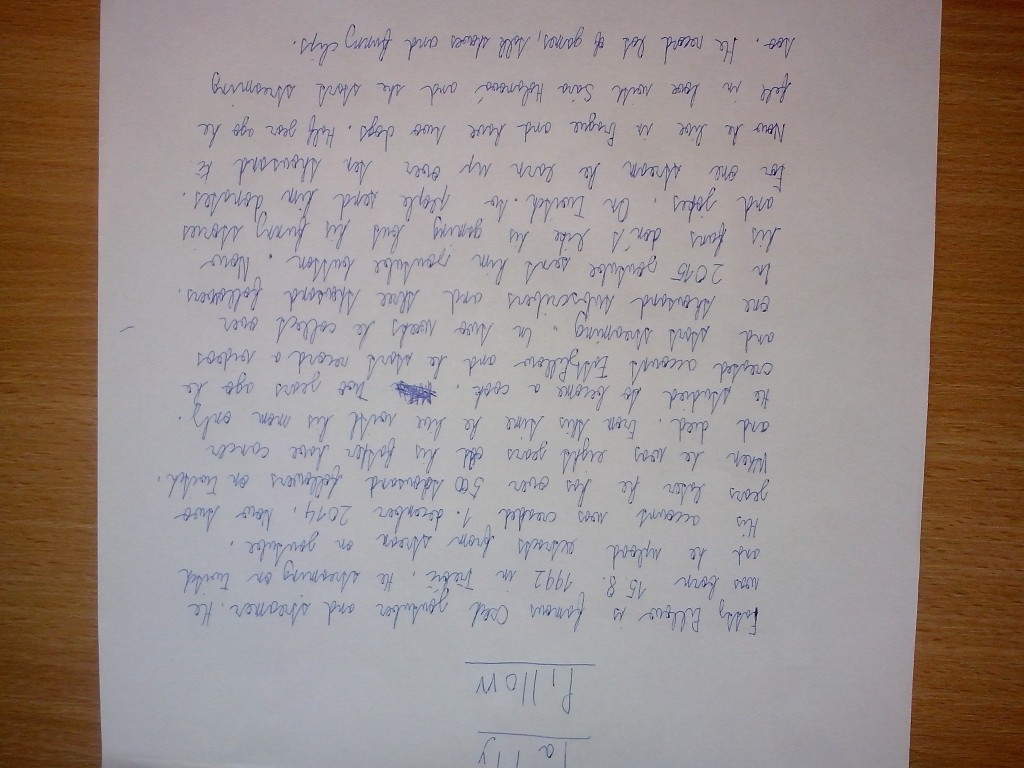 Fatty
Pillow
Fatty Pillow is famous Czech youtuber and streamer. He
was born 15.8. 1992 in Třebíč. He streaming on Twitch
and he upload extracts from stream on youtube.
His account was created 1. december 2014. Now two
years later he has over 500 thousand followers on Twitch.
When he was eight years old his father have cancer
and died. From this time he live with his mom only.
He studied to become a cook. Two years ago he
created accounts Fattypillow and he start record a videos
and start streaming. In two weeks he collect over
one thousand subscribers and three thousand followers.
In 2015 youtube sent him youtube button. Now
his fans don't like his gaming but his funny stories
and jokes. On Twitch.tv people send him donates.
For one stream he earn up over ten thousand Kč.
Now he live in Prague and have two dogs. Half year ago he
fell in love with Sára and she start streaming
too. He record lot of games, talk shows and funny clips.